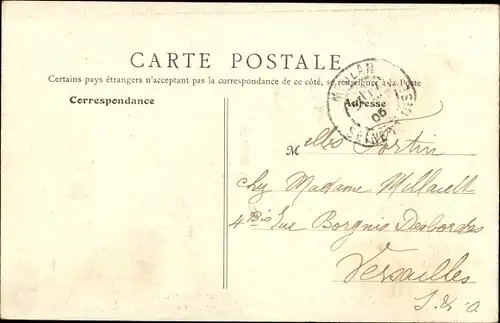 CARTE POSTALE
Certains pays étrangers n'acceptant pas la correspondance de ce côté, se renseigner à la Poste
Correspondance
Adresse
MEULAN
05
SEINE-ET-OISE
Melles Fortin
chez Madame Millault
4 Bis Rue Borgnis Desbordes
Versailles
S. & O.